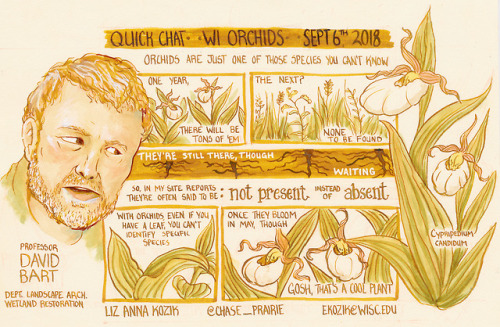 QUICK CHAT - WI ORCHIDS - SEPT 6TH 2018
ORCHIDS ARE JUST ONE OF THOSE SPECIES YOU CAN'T KNOW
ONE YEAR,
THERE WILL BE
TONS OF 'EM
THE NEXT?
NONE
TO BE FOUND
THEY'RE STILL THERE, THOUGH
WAITING
SO, IN MY SITE REPORTS
THEY'RE OFTEN SAID TO BE:
not present
INSTEAD
OF
absent
WITH ORCHIDS EVEN IF YOU
HAVE A LEAF, YOU CAN'T
IDENTIFY SPECIFIC
SPECIES
ONCE THEY BLOOM
IN MAY, THOUGH
GOSH, THAT'S A COOL PLANT
CYPRIPEDIUM
CANDIDUM
PROFESSOR
DAVID
BART
DEPT. LANDSCAPE ARCH.
WETLAND RESTORATION
LIZ ANNA KOZIK
@CHASE_PRAIRIE
EKOZIK@WISC.EDU